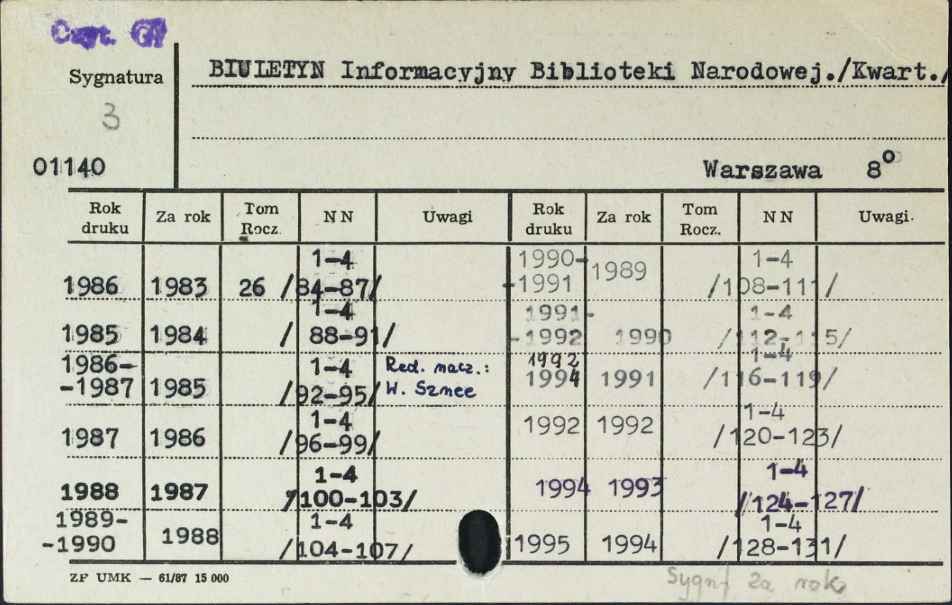 Czyt. GN
Sygnatura
BIULETYN Informacyjny Biblioteki Narodowej./Kwart./
3
01140
Warszawa 8°
Rok druku Za rok Tom Rocz. NN Uwagi Rok druku Za rok Tom Rocz. NN Uwagi.
1986 1983 26 1-4 /84-87/ 1990-1991 1989 1-4 /108-111/
1985 1984 1-4 / 88-91/ 1991-1992 1990 1-4 /112-115/
1986-1987 1985 1-4 /92-95/ Red. nacz.: W. Sznee 1992 1994 1991 1-4 /116-119/
1987 1986 1-4 /96-99/ 1992 1992 1-4 /120-123/
1988 1987 1-4 /100-103/ 1994 1993 1-4 /124-127/
1989-1990 1988 1-4 /104-107/ 1995 1994 1-4 /128-131/
ZP UMK — 61/87 15 000
Sygn. za rok